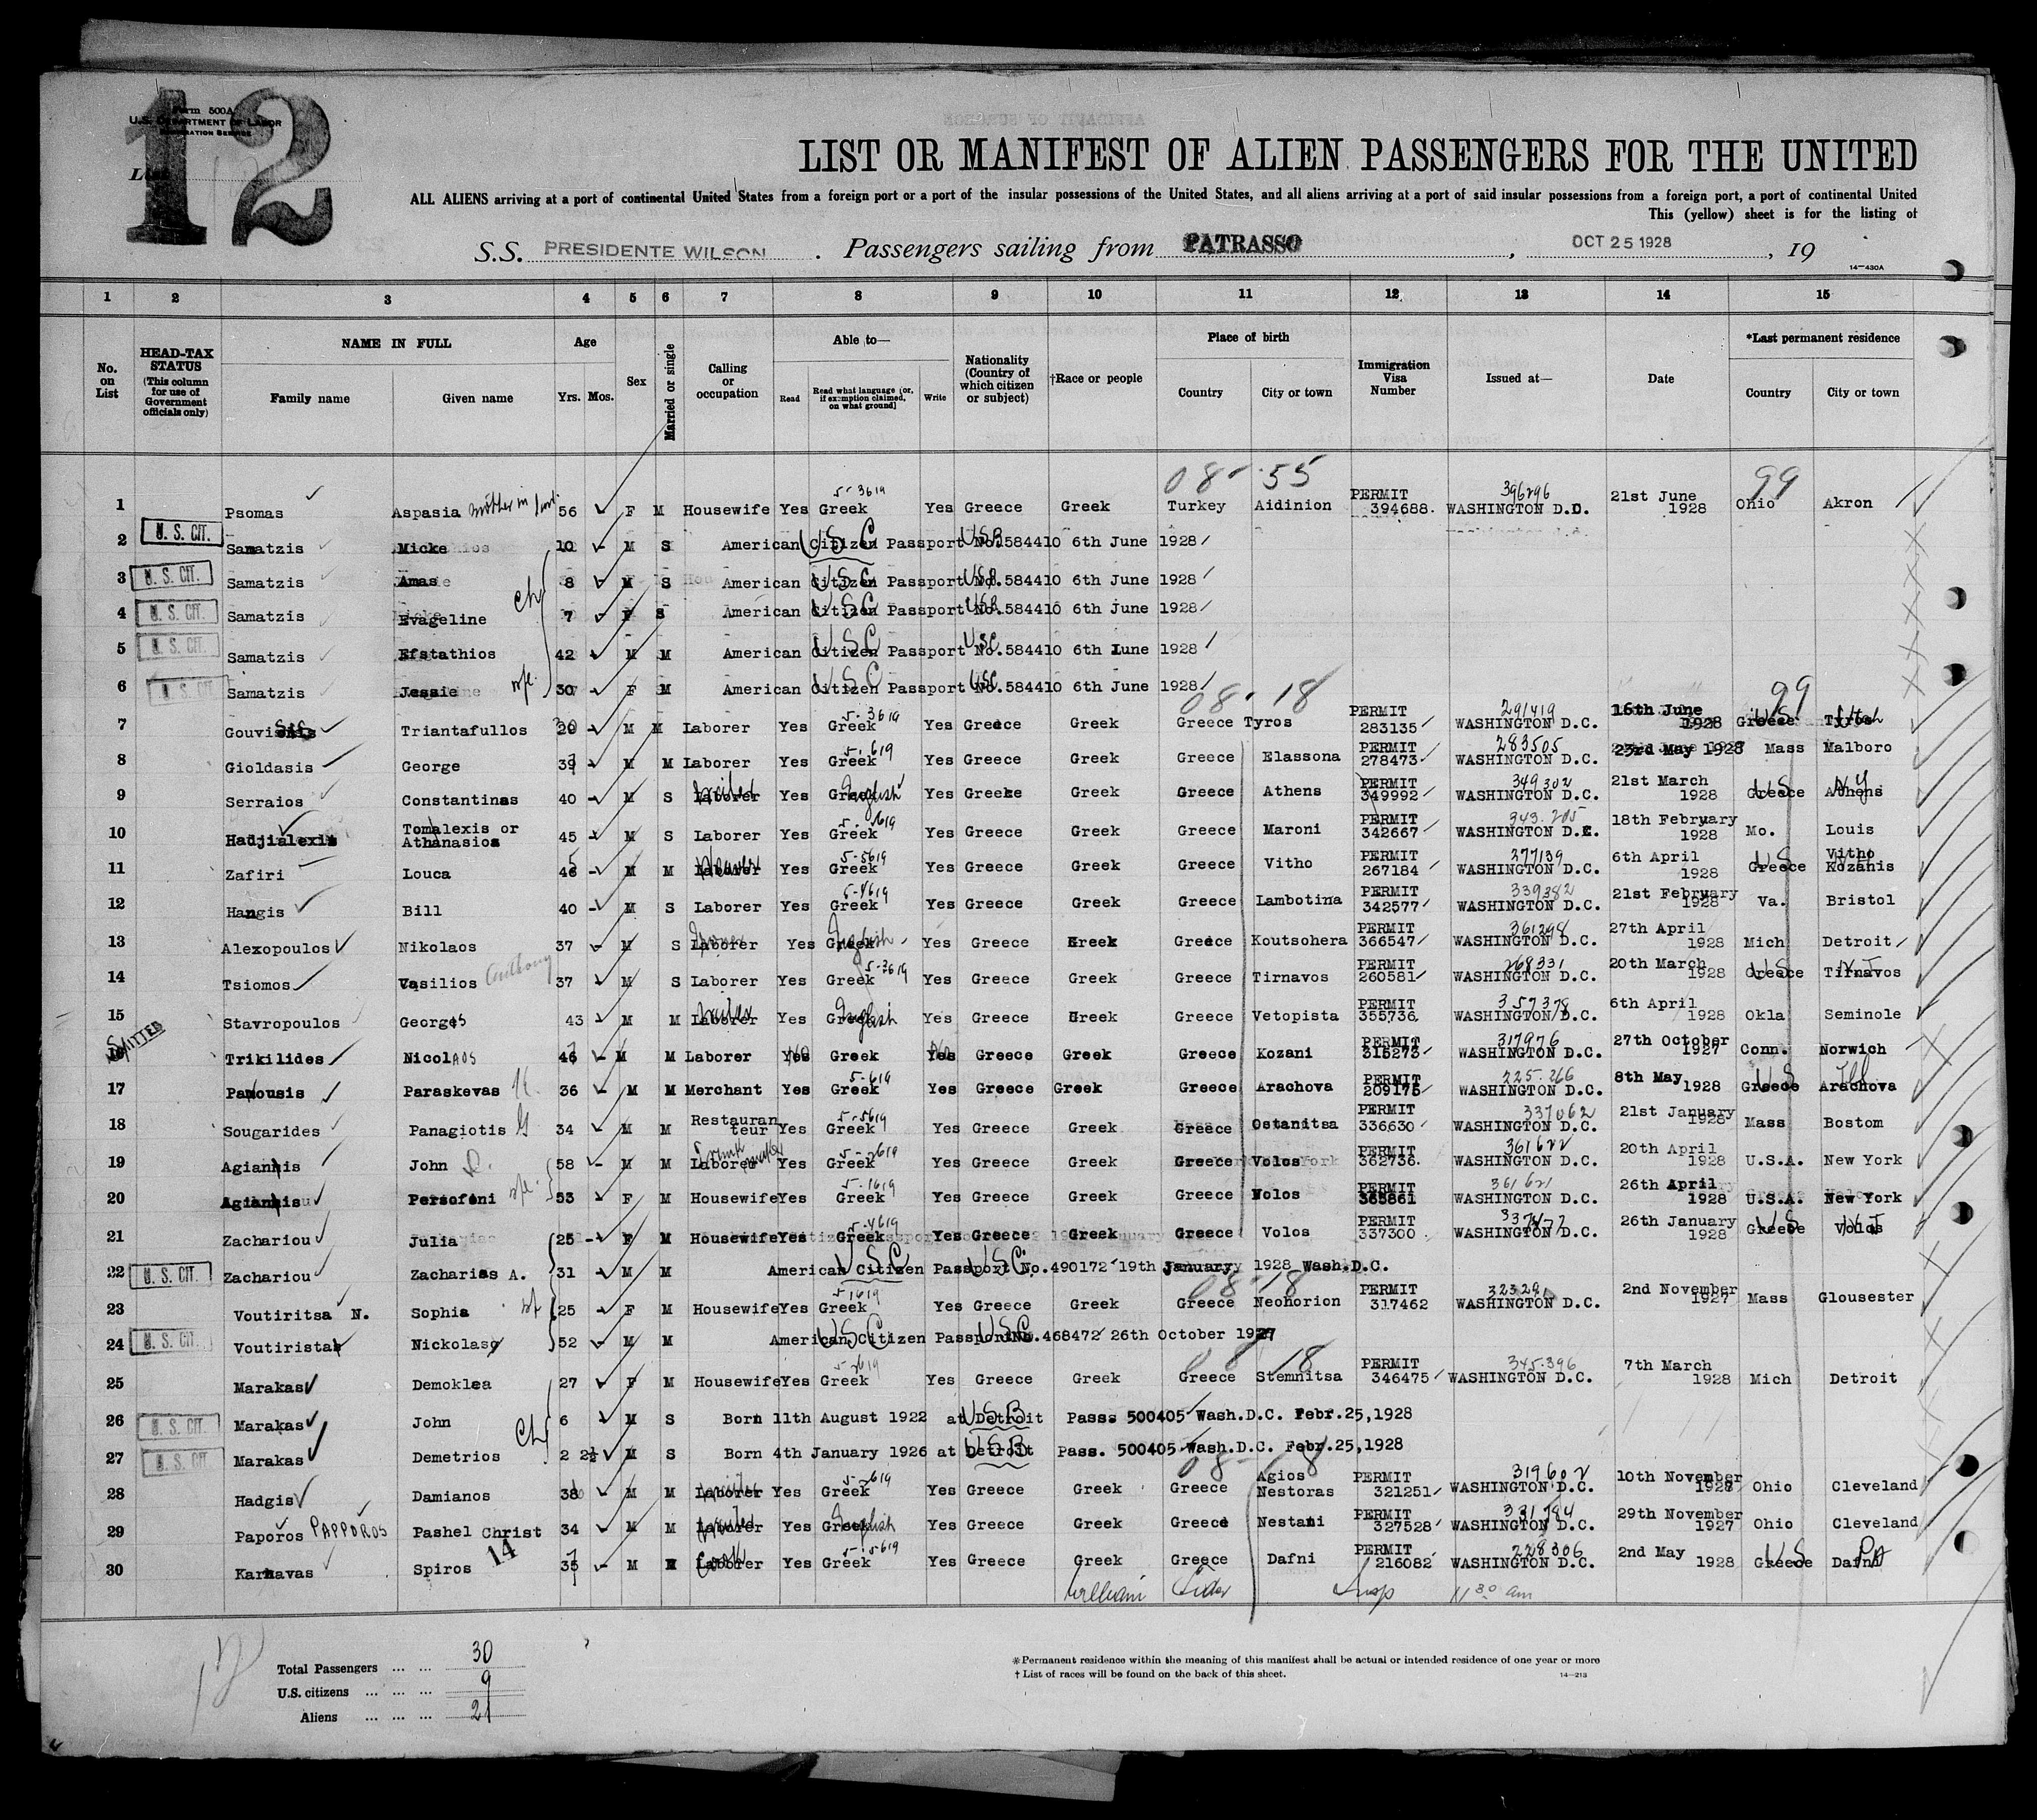 12
Form 500A
U.S. DEPARTMENT OF LABOR
IMMIGRATION SERVICE
List
LIST OR MANIFEST OF ALIEN PASSENGERS FOR THE UNITED
ALL ALIENS arriving at a port of continental United States from a foreign port or a port of the insular possessions of the United States, and all aliens arriving at a port of said insular possessions from a foreign port, a port of continental United
This (yellow) sheet is for the listing of
S.S. PRESIDENTE WILSON . Passengers sailing from PATRASSO , OCT 25 1928 , 19
14—430A
1 2 3 4 5 6 7 8 9 10 11 12 13 14 15
No. on List HEAD-TAX STATUS (This column for use of Government officials only) NAME IN FULL Family name Given name Age Yrs. Mos. Sex Married or single Calling or occupation Able to— Read Read what language [or, if exemption claimed, on what ground] Write Nationality (Country of which citizen or subject) †Race or people Place of birth Country City or town Immigration Visa Number Issued at— Date *Last permanent residence Country City or town
08- 55 99
1 Psomas Aspasia mother in law 56 F M Housewife Yes Greek 5-3619 Yes Greece Greek Turkey Aidinion PERMIT 394688. 396296 WASHINGTON D.C. 21st June 1928 Ohio Akron
2 U. S. CIT. Samatzis Micke 10 - M S American Citizen Passport No.584410 6th June 1928 USC USB
3 U. S. CIT. Samatzis Amas 8 M S American Citizen Passport No.584410 6th June 1928 USC USB
4 U. S. CIT. Samatzis Evageline ch 7 F S American Citizen Passport No.584410 6th June 1928 USC USB
5 U. S. CIT. Samatzis Efstathios 42 M M American Citizen Passport No.584410 6th Iune 1928 USC USC
6 U. S. CIT Samatzis Jessie wfe. 30 - F M American Citizen Passport No.584410 6th June 1928 USC USC
08- 18 99
7 Gouvis Triantafullos - M M Laborer Yes Greek 5-3619 Yes Greece Greek Greece Tyros PERMIT 283135 291419 WASHINGTON D.C. 16th June 1928 Greece US Utah
8 Gioldasis George M M Laborer Yes Greek 5-619 Yes Greece Greek Greece Elassona PERMIT 278473 283505 WASHINGTON D.C. 23rd May 1928 Mass Malboro
9 Serraios Constantinas 40 - M S Laborer Yes Greek English Yes Greeke Greek Greece Athens PERMIT 349992 349302 WASHINGTON D.C. 21st March 1928 Greece US Athens N.Y.
10 Hadjialexis Tomalexis or Athanasios 45 - M S Laborer Yes Greek 5-619 Yes Greece Greek Greece Maroni PERMIT 342667 343.205 WASHINGTON D.C. 18th February 1928 Mo. Louis
11 Zafiri Louca - M M Laborer Yes Greek 5-5619 Yes Greece Greek Greece Vitho PERMIT 267184 277139 WASHINGTON D.C. 6th April 1928 Greece US Vitho Kozanis
12 Hangis Bill 40 - M S Laborer Yes Greek 5-4619 Yes Greece Greek Greece Lambotina PERMIT 342577 339382 WASHINGTON D.C. 21st February 1928 Va. Bristol
13 Alexopoulos Nikolaos 37 - M S Laborer Yes Greek English Yes Greece Greek Greece Koutsohera PERMIT 366547 361298 WASHINGTON D.C. 27th April 1928 Mich Detroit
14 Tsiomos Vasilios Anthony 37 M S Laborer Yes Greek 5-3619 Yes Greece Greek Greece Tirnavos PERMIT 260581 268331 WASHINGTON D.C. 20th March 1928 Greece US Tirnavos
15 Stavropoulos Georges 43 M M Laborer Yes Greek English Yes Greece Greek Greece Vetopista PERMIT 355736 357378 WASHINGTON D.C. 6th April 1928 Okla Seminole
ADMITTED Trikilides Nicolaos - M M Laborer Yes No Greek Yes No Greece Greek Greece Kozani PERMIT 315273 317976 WASHINGTON D.C. 27th October 1927 Conn. Norwich
17 Panousis Paraskevas 36 - M M Merchant Yes Greek 5-619 Yes Greece Greek Greece Arachova PERMIT 209175 225.266 WASHINGTON D.C. 8th May 1928 Greece US Arachova Ill
18 Sougarides Panagiotis G 34 M M Restauran teur Yes Greek 5-5619 Yes Greece Greek Greece Ostanitsa PERMIT 336630 337062 WASHINGTON D.C. 21st January 1928 Mass Bostom
19 Agiannis John 58 - M M Laborer Yes Greek 5-2619 Yes Greece Greek Greece Volos PERMIT 362736. 361622 WASHINGTON D.C. 20th April 1928 U.S.A. New York
20 Agiannis Persofoni wfe. 53 - F M Housewife Yes Greek 5-1619 Yes Greece Greek Greece Volos PERMIT 365661 361621 WASHINGTON D.C. 26th April 1928 U.S.A. New York
21 Zachariou Julia 25 - F M Housewife Yes Greek 5-4619 Yes Greece Greek Greece Volos PERMIT 337300 337477 WASHINGTON D.C. 26th January 1928 Greece US Volos
22 U. S. CIT. Zachariou Zacharias A. 31 - M M American Citizen Passport No.490172 19th January 1928 Wash.D.C. USC USC
08-18
23 Voutiritsa N. Sophia wf 25 - F M Housewife Yes Greek 5-1619 Yes Greece Greek Greece Neohorion PERMIT 317462 WASHINGTON D.C. 2nd November 1927 Mass Glousester
24 U. S. CIT. Voutiristas Nickolas 52 - M M American Citizen Passport No.468472 26th October 1927 USC USC
08 18
25 Marakas Demoklea 27 F M Housewife Yes Greek 5-2619 Yes Greece Greek Greece Stemnitsa PERMIT 346475 345.396 WASHINGTON D.C. 7th March 1928 Mich Detroit
26 U. S. CIT. Marakas John 6 M S Born 11th August 1922 at Detroit USB Passs 500405 Wash.D.C. Febr.25,1928
27 U. S. CIT Marakas Demetrios ch 2 2½ M S Born 4th January 1926 at Detroit USB Pass. 500405 Wash.D.C. Febr.25,1928
08-18
28 Hadgis Damianos 38 - M M Laborer Yes Greek 5-2619 Yes Greece Greek Greece Agios Nestoras PERMIT 321251 319602 WASHINGTON D.C. 10th November 1927 Ohio Cleveland
29 Paporos PAPPOROS Pashel Christ 34 - M M Laborer Yes Greek English Yes Greece Greek Greece Nestani PERMIT 327528 331784 WASHINGTON D.C. 29th November 1927 Ohio Cleveland
30 Karnavas Spiros 14 35 - M M Laborer Cook Yes Greek 5-5619 Yes Greece Greek Greece Dafni PERMIT 216082 228306 WASHINGTON D.C. 2nd May 1928 Greece US Dafni PA
William Insp 11 30 am
12
Total Passengers ... ... 30
U.S. citizens ... ... ... 9
Aliens ... ... ... 21
*Permanent residence within the meaning of this manifest shall be actual or intended residence of one year or more
† List of races will be found on the back of this sheet.
14—213